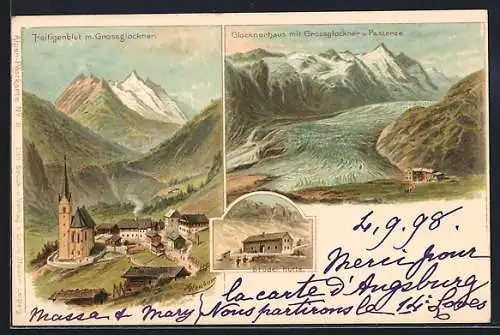 Heiligenblut m. Grossglockner.
Glocknerhaus mit Grossglockner u. Pasterze
Alpen-Postkarte No
Stüdl Hütte
4.9.98.
Merci pour
la carte d'Augsburg
Massa & Mary Nous partirons la 14